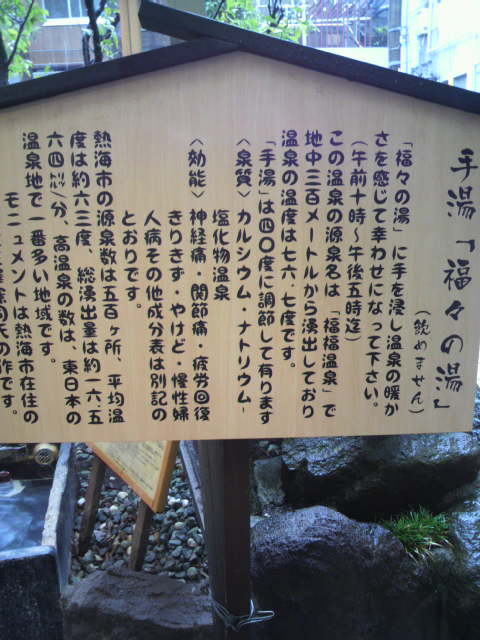 手湯「福々の湯」
(飲めません)
「福々の湯」に手を浸し温泉の暖か
さを感じて幸わせになって下さい。
(午前十時～午後五時迄)
この温泉の源泉名は「福福温泉」で
地中三百メートルから湧出しており
温泉の温度は七六.七度です。
「手湯」は四〇度に調節して有ります
〈泉質〉カルシウム・ナトリウム-
塩化物温泉
〈効能〉神経痛・関節痛・疲労回後
きりきず・やけど・慢性婦
人病その他成分表は別記の
とおりです。
熱海市の源泉数は五百ヶ所、平均温
度は約六三度、総湧出量は約一六五
六四㍑分、高温泉の数は、東日本の
温泉地で一番多い地域です。
モニュメントは熱海市在住の
氏の作です。